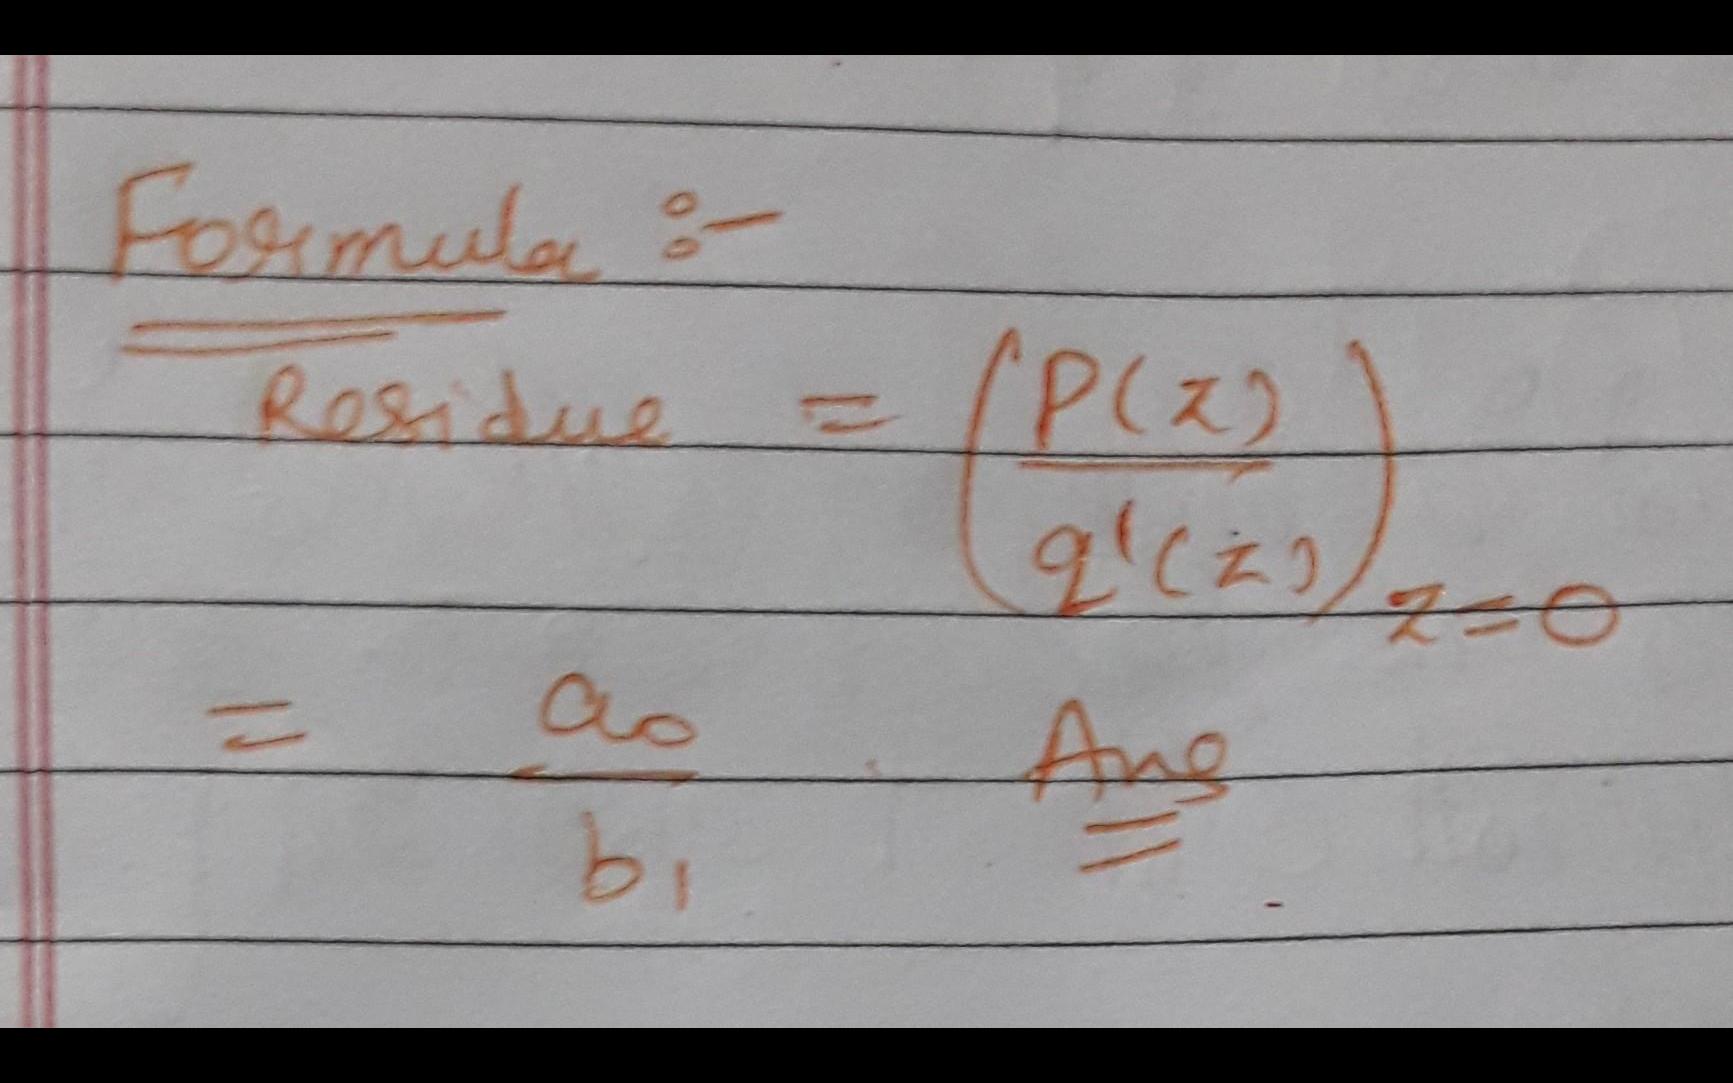 Formula :-
Residue = (P(z) / q'(z)) z=0
= a₀ / b₁ Ans